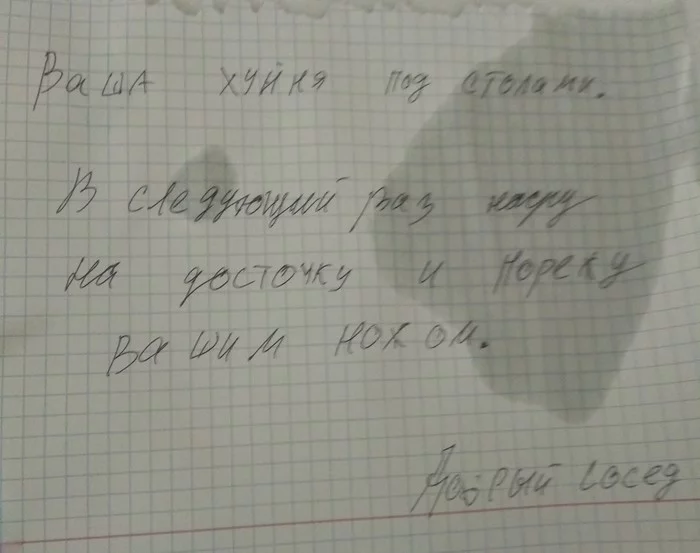 Ваша хуйня под столами.
В следующий раз насру
на досточку и порежу
вашим ножом.
Добрый сосед